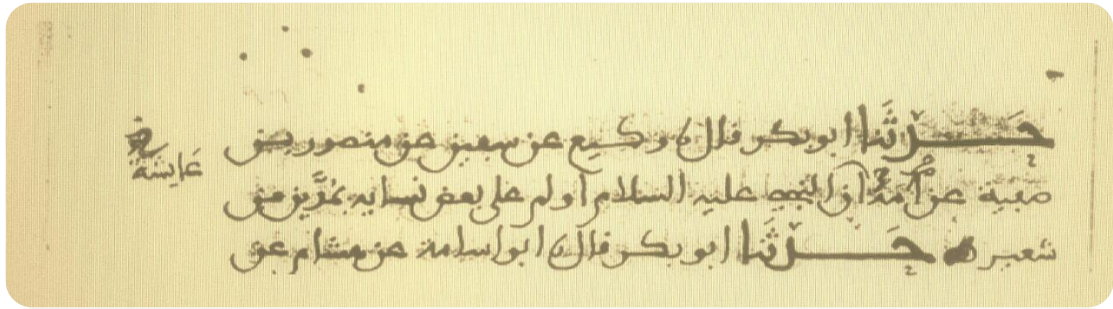 حَدَّثَنَا ابو بكر قال نا وكيع عن سفين عن منصور بن
صفية عن أُمِّه أن النبي عليه السلام أولم على بعض نسايه بمُدَّين من
شعير حَدَّثَنَا ابو بكر قال نا ابو اسامة عن هشام عن
عَايشة